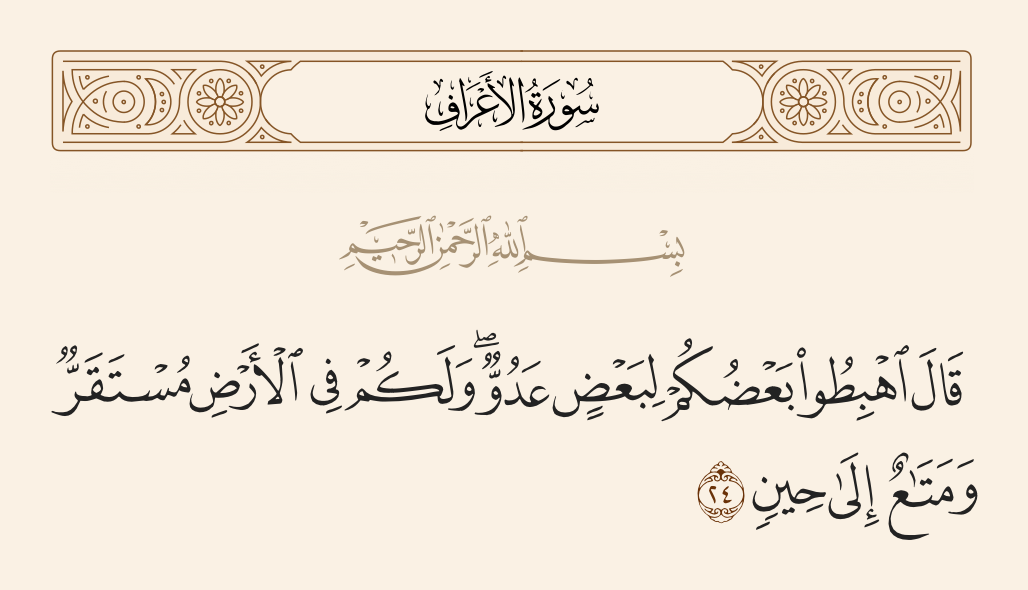 سُورَةُ الأَعْرَافِ
بِسْمِ ٱللَّهِ ٱلرَّحْمَٰنِ ٱلرَّحِيمِ
قَالَ ٱهْبِطُوا۟ بَعْضُكُمْ لِبَعْضٍ عَدُوٌّ ۖ وَلَكُمْ فِى ٱلْأَرْضِ مُسْتَقَرٌّ
وَمَتَـٰعٌ إِلَىٰ حِينٍ ٢٤